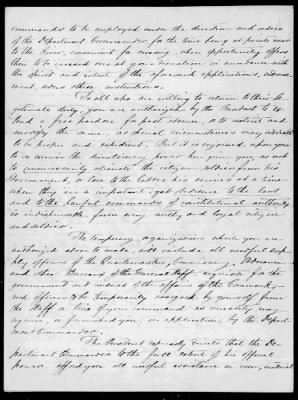 commands to be employed under the direction and orders
of the Department Commander, for the time being at points near
to the River, convenient for crossing, when opportunity offers
then to be crossed over at your discretion in accordance with
the spirit and intent of the aforesaid applications, indorse-
ment, and these instructions.
To all who are willing to return to their le-
gitimate duty, you are authorized by the President to ex-
tend a free pardon for past offences, or to restrict and
modify the same, as special circumstances may indicate
to be proper and expedient. But it is enjoined upon you
to so exercise the discretionary power thus given you, as not
to unnecessarily alienate the citizen soldier from his
Government, or lose to the latter his services at a time
when they are so important. Strict obedience to the laws
and to the lawful commands of constitutional authority
is indispensable from every united and loyal citizen
and soldier.
The temporary organizations which you are
authorized above to make, will include all needful sup-
ply officers of the Quartermaster, Commissary, Ordnance
and other Bureaus of the General Staff requisite for the
government and supply of the affairs of the Command,
such officers to be temporarily assigned by yourself from
the Staff or line of your command as necessity may
require, or furnished you, on application, by the Depart-
ment Commander.
The President expressly directs that the De-
partment Commander to the full extent of his official
power, afford you all needful assistance in men, material